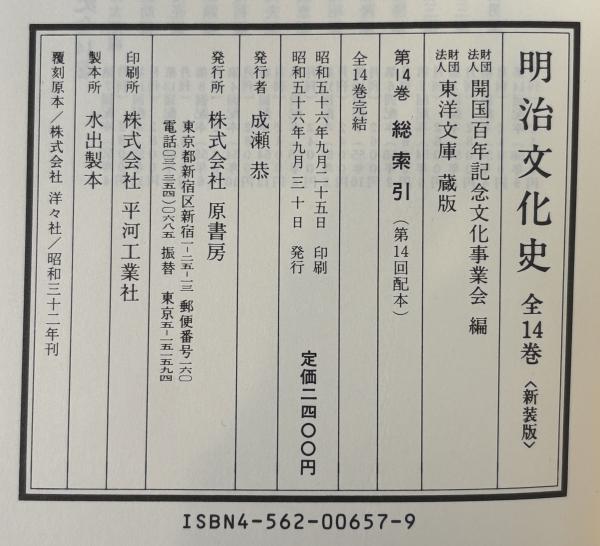 明治文化史 全14巻〈新装版〉
財団法人 開国百年記念文化事業会 編
財団法人 東洋文庫 蔵版
第14巻 総索引（第14回配本）
全14巻完結
昭和五十六年九月二十五日 印刷
昭和五十六年九月三十日 発行
定価二四〇〇円
発行者 成瀬 恭
発行所 株式会社 原書房
東京都新宿区新宿一-二五-一三 郵便番号一六〇
電話〇三(三五四)〇六八五 振替 東京五-一五一五九四
印刷所 株式会社 平河工業社
製本所 水出製本
覆刻原本／株式会社 洋々社／昭和三十二年刊
ISBN4-562-00657-9